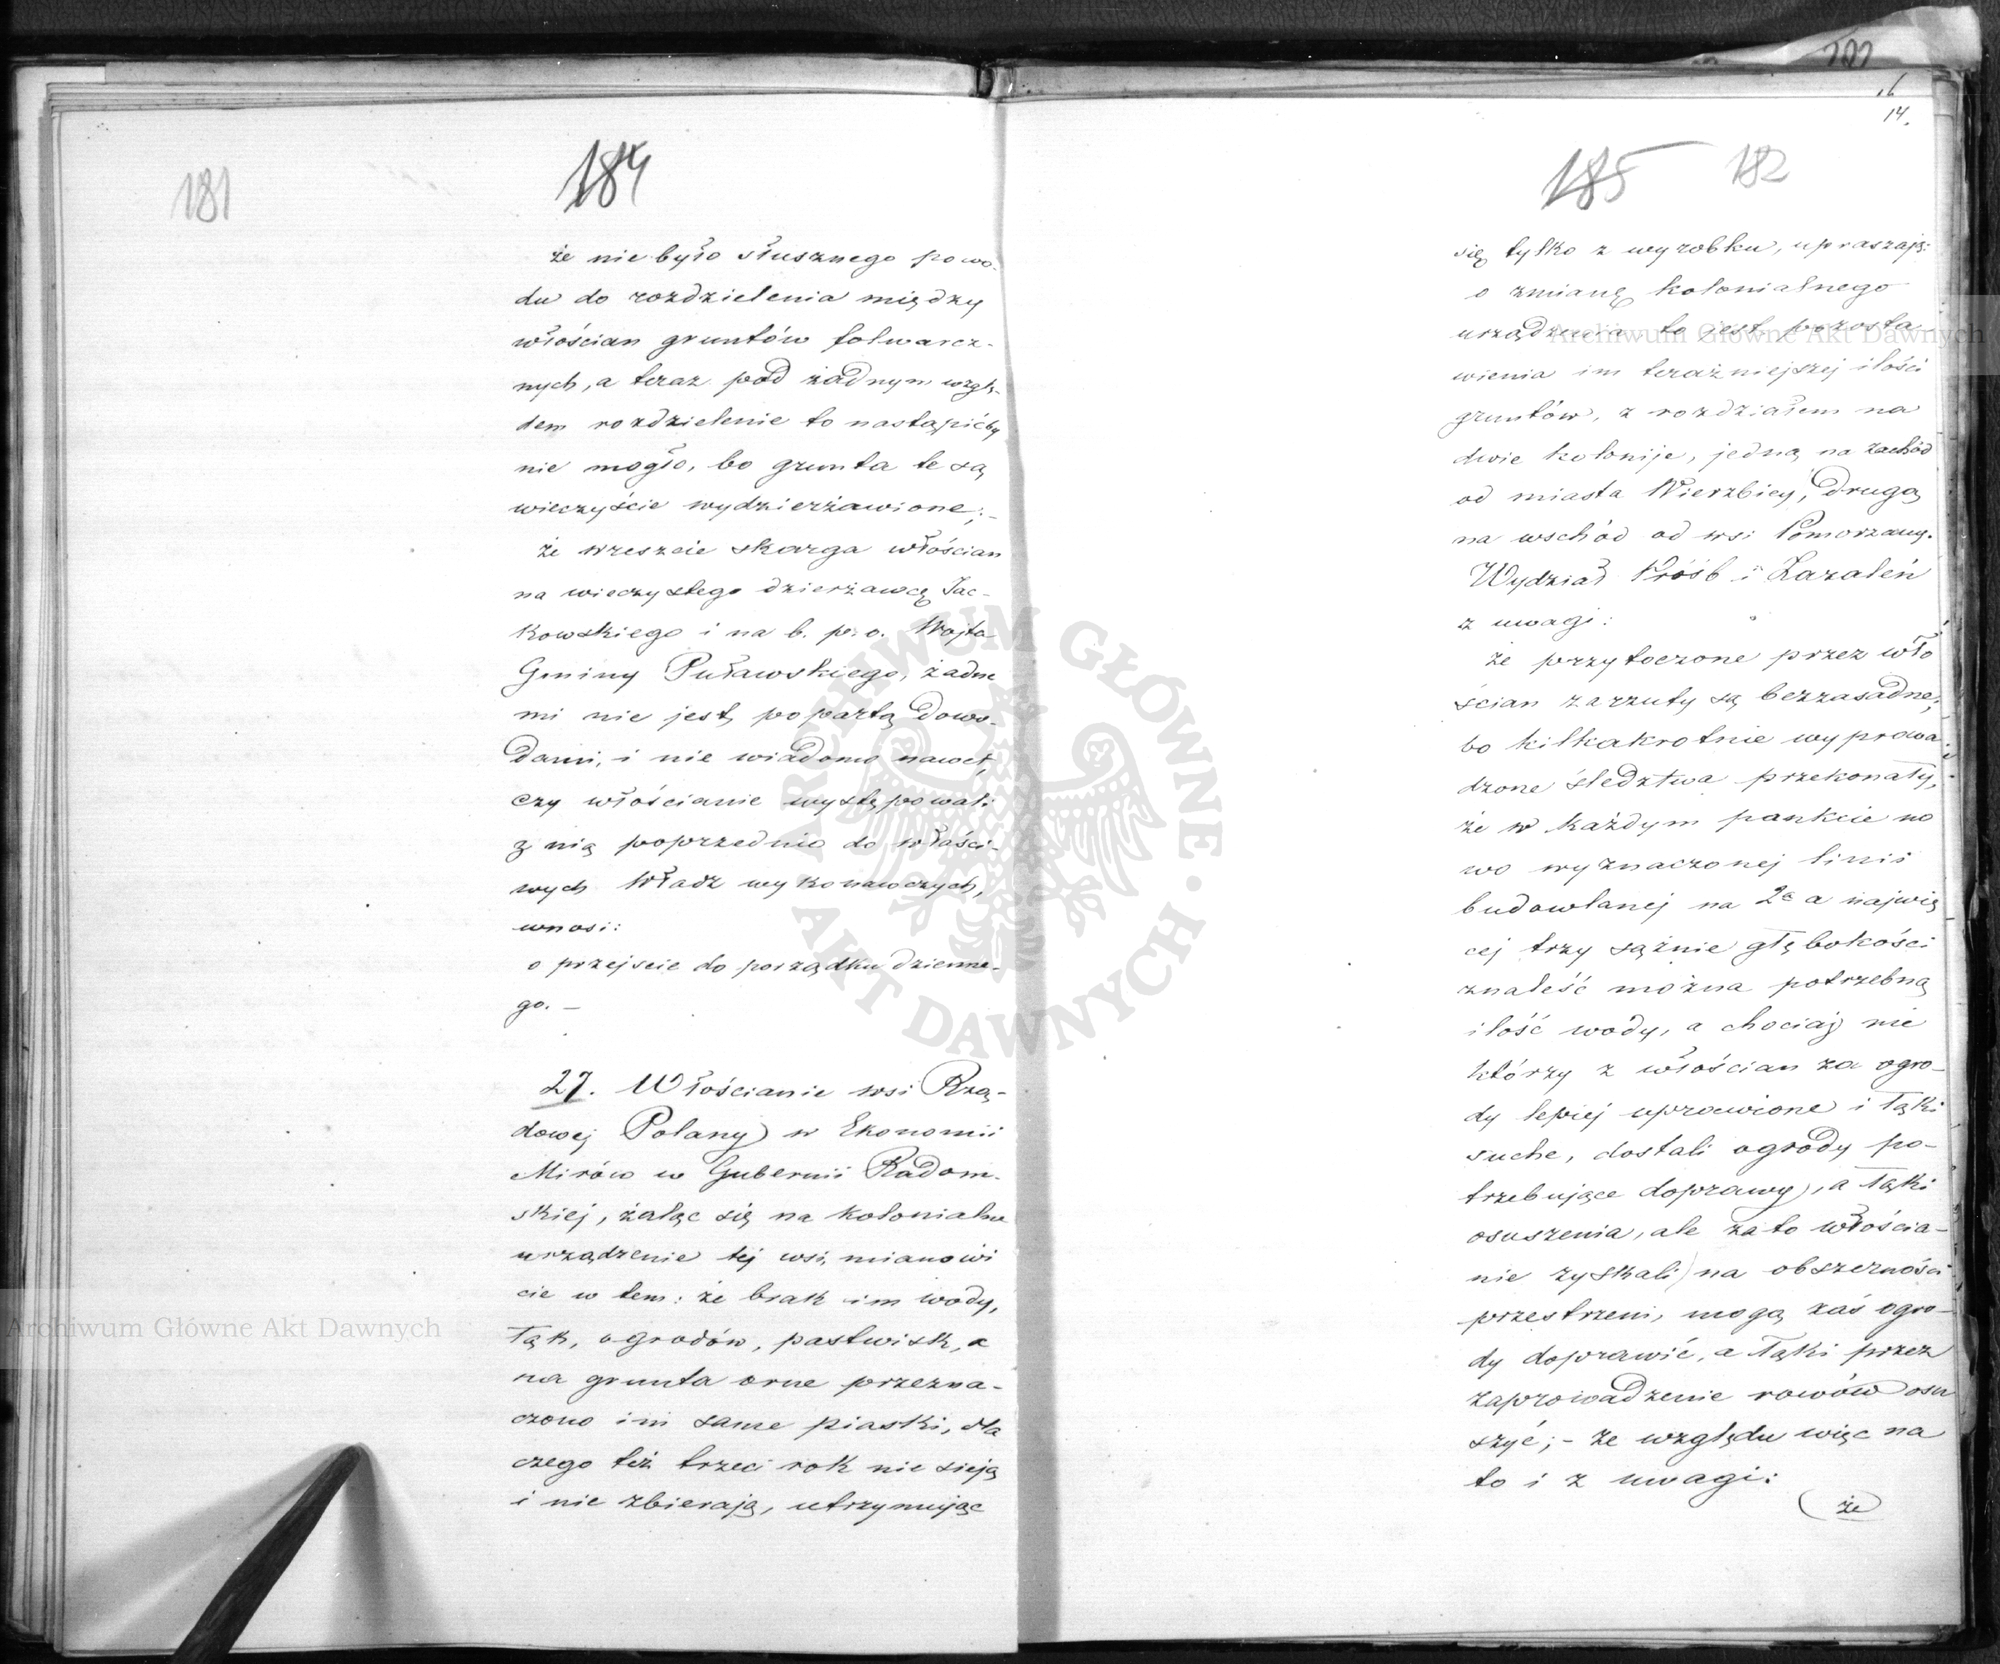 181
184
że nie było słusznego powo-
du do rozdzielenia między
włościan gruntów folwarcz-
nych, a teraz pod żadnym wzglę-
dem rozdzielenie to nastąpićby
nie mogło, bo grunta te są
wieczyście wydzierżawione; -
że wreszcie skarga włościan
na wieczystego dzierżawcę Jac-
kowskiego i na b. p. o. Wojta
Gminy Puławskiego, żadne
mi nie jest popartą dowo-
dami, i nie wiadomo nawet,
czy włościanie występowali
z nią poprzednio do właści-
wych Władz wykonawczych,
wnosi:
o przejście do porządku dzienne-
go. —
27. Włościanie wsi Rzą-
dowej Polany w Ekonomii
Mirów w Gubernii Radom-
skiej, żaląc się na kolonialne
urządzenie tej wsi, mianowi
cie w tem: że brak im wody,
łąk, ogrodów, pastwisk, a
na grunta orne przezna-
czono im same piaski, dla
czego też trzeci rok nie sieją
i nie zbierają, utrzymując
14.
185 182
się tylko z wyrobku, upraszają:
o zmianę kolonialnego
urządzenia to jest pozosta-
wienia im teraźniejszej ilości
gruntów, z rozdziałem na
dwie kolonije, jedną na zachód
od miasta Wierzbicy, drugą
na wschód od wsi Pomorzany.
Wydział Próśb i Zażaleń
z uwagi:
że przytoczone przez wło
ścian zarzuty są bezzasadne;
bo kilkakrotnie wyprowa
dzone śledztwa przekonały,
że w każdym punkcie no
wo wyznaczonej linii
budowlanej na 2a a najwię
cej trzy sążnie głębokości
znaleść można potrzebną
ilość wody, a chociaż nie
którzy z włościan za ogro-
dy lepiej uprawione i łąki
suche, dostali ogrody po-
trzebujące doprawy, a łąki
osuszenia, ale za to włościa-
nie zyskali na obszerności
przestrzeni, mogą zaś ogro-
dy doprawić, a łąki przez
zaprowadzenie rowów osu
szyć; - ze względu więc na
to i z uwagi:
że
Archiwum Główne Akt Dawnych
Archiwum Główne Akt Dawnych
ARCHIWUM GŁÓWNE · AKT DAWNYCH ·